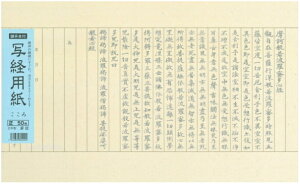 摩訶般若波羅蜜多心経
観自在菩薩行深般若波羅蜜多時照見五
蘊皆空度一切苦厄舎利子色不異空空不
異色色即是空空即是色受想行識亦復如
是舎利子是諸法空相不生不滅不垢不浄
不増不減是故空中無色無受想行識無眼
耳鼻舌身意無色声香味触法無眼界乃至
無意識界無無明亦無無明尽乃至無老死
亦無老死尽無苦集滅道無智亦無得以無
所得故菩提薩埵依般若波羅蜜多故心無
罣礙無罣礙故無有恐怖遠離一切顛倒夢
想究竟涅槃三世諸仏依般若波羅蜜多故
得阿耨多羅三藐三菩提故知般若波羅蜜
多是大神呪是大明呪是無上呪是無等等
呪能除一切苦真実不虚故説般若波羅蜜
多呪即説呪曰
羯諦羯諦波羅羯諦波羅僧羯諦菩提薩婆訶
般若心経
写経用紙
こころ
50